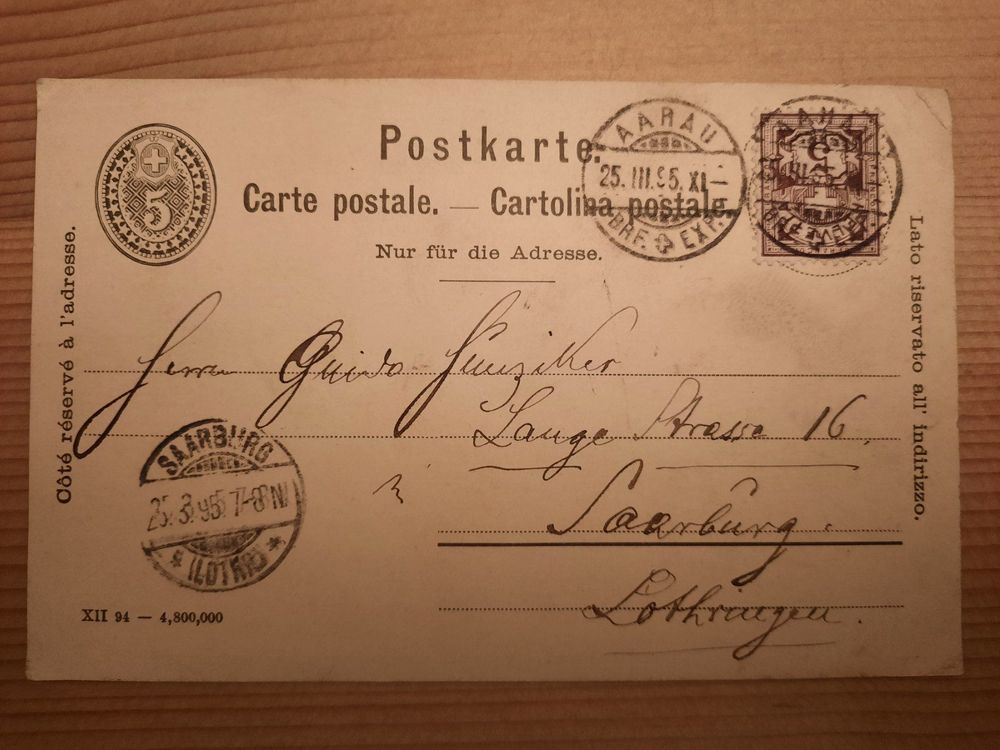 Postkarte.
Carte postale. — Cartolina postale.
Nur für die Adresse.
Côté réservé à l'adresse.
Lato riservato all' indirizzo.
5
AARAU
25. III. 95. XI—
BRF. EXP.
5
Herrn Guido Hunziker
Lange Strasse 16.
Saarburg.
Lothringen.
SAARBURG
25.3.95 7-8N.
* (LOTHR) *
XII 94 — 4,800,000